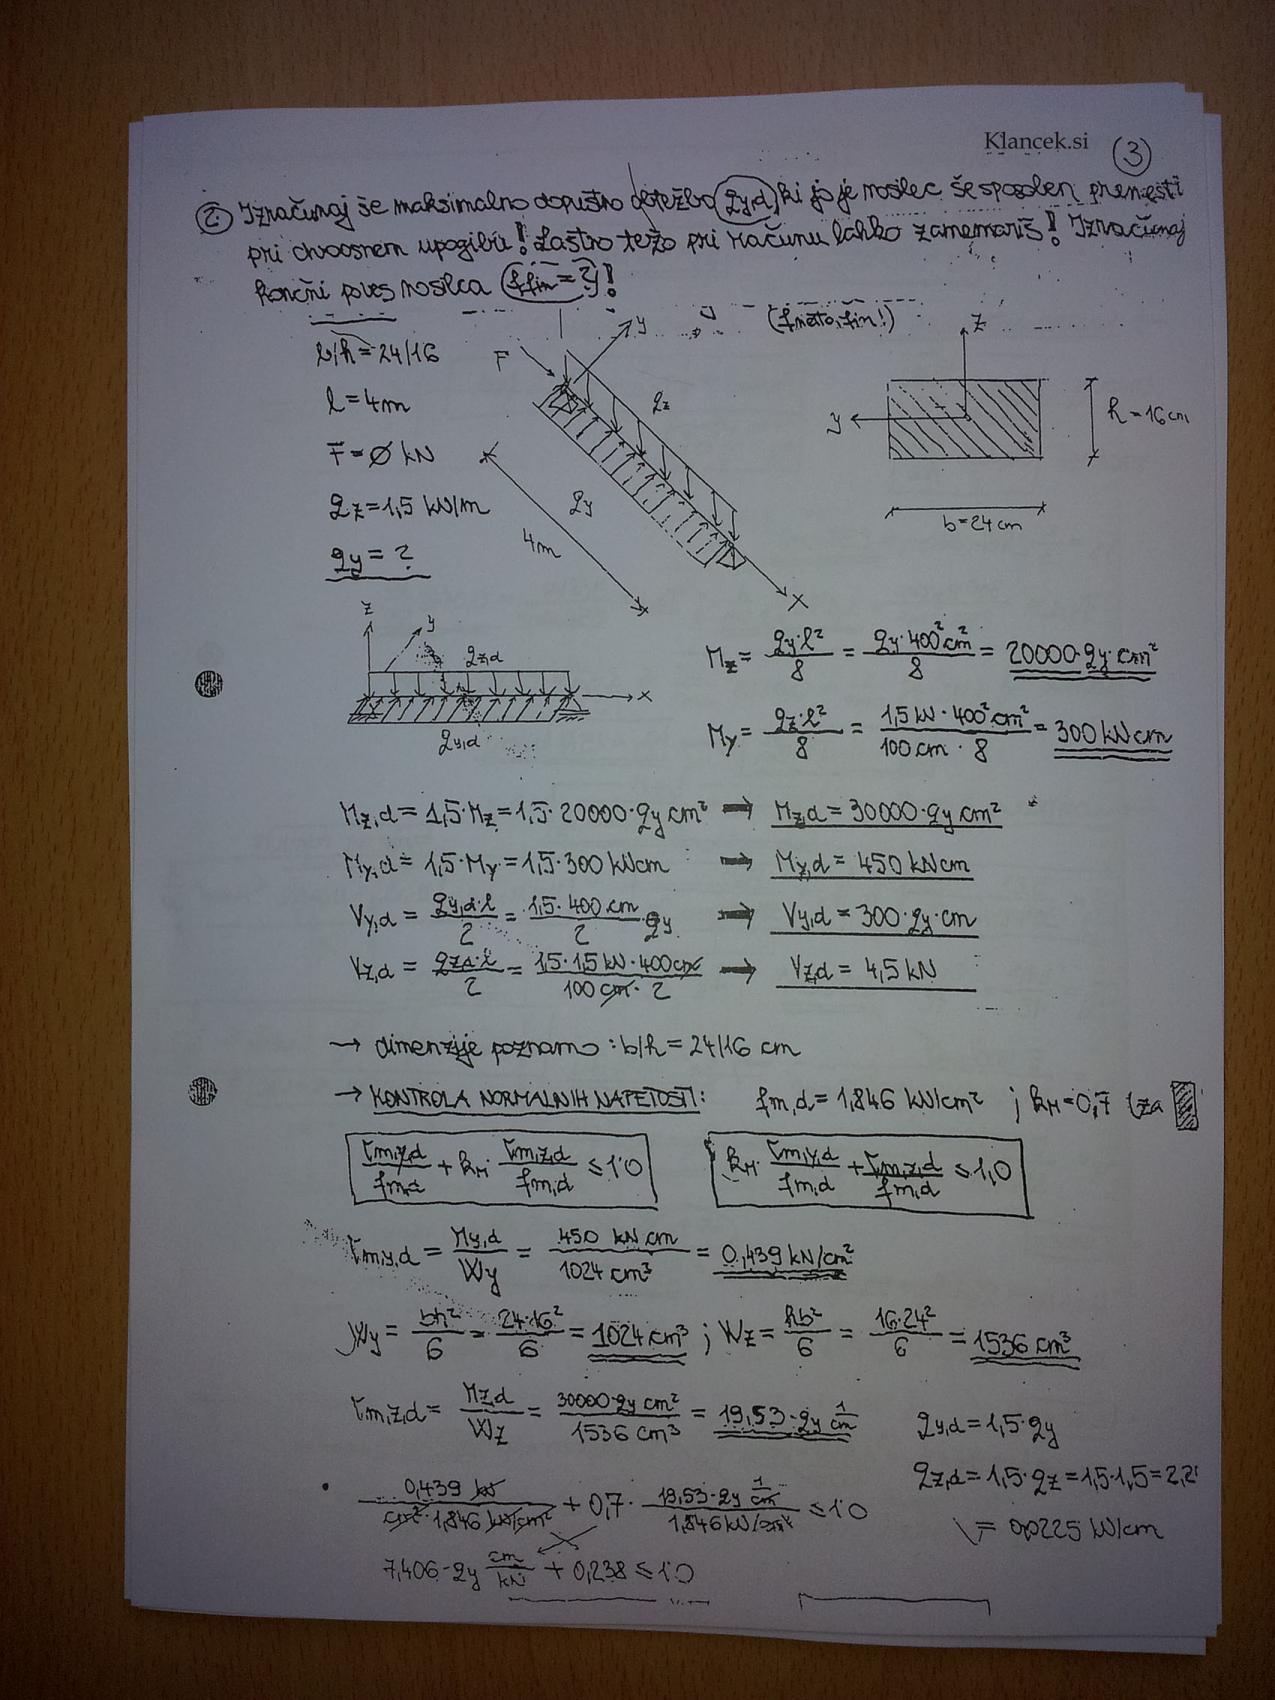 Klancek.si
3
2 Izračunaj še maksimalno dopustno obtežbo qy,d, ki jo je nosilec še sposoben prenesti
pri dvoosnem upogibu! Lastno težo pri računu lahko zanemariš! Izračunaj
končni poves nosilca (ffin=?)!
(fneto,fin!)
b/h = 24/16
l = 4m
F = Ø kN
qz = 1,5 kN/m
qy = ?
F
y
qz
qy
4m
x
z
y
h = 16 cm
b = 24 cm
z
y
qz,d
x
qy,d
Mz = qy·l²/8 = qy·400²cm²/8 = 20000·qy·cm²
My = qz·l²/8 = 1,5 kN·400²cm²/100 cm·8 = 300 kNcm
Mz,d = 1,5·Mz = 1,5·20000·qy cm² → Mz,d = 30000·qy cm²
My,d = 1,5·My = 1,5·300 kNcm → My,d = 450 kNcm
Vy,d = qy,d·l/2 = 1,5·400 cm/2·qy → Vy,d = 300·qy·cm
Vz,d = qz,d·l/2 = 1,5·1,5 kN·400cm/100 cm·2 → Vz,d = 4,5 kN
→ dimenzije poznamo: b/h = 24/16 cm
→ KONTROLA NORMALNIH NAPETOSTI: fm,d = 1,846 kN/cm² ; kM = 0,7 (za
σm,y,d/fm,d + kM·σm,z,d/fm,d ≤ 1,0
kM·σm,y,d/fm,d + σm,z,d/fm,d ≤ 1,0
σm,y,d = My,d/Wy = 450 kNcm/1024 cm³ = 0,439 kN/cm²
Wy = bh²/6 = 24·16²/6 = 1024 cm³ ; Wz = hb²/6 = 16·24²/6 = 1536 cm³
σm,z,d = Mz,d/Wz = 30000·qy cm²/1536 cm³ = 19,53·qy 1/cm
qy,d = 1,5·qy
qz,d = 1,5·qz = 1,5·1,5 = 2,2
= 0,0225 kN/cm
0,439 kN/cm²·1,846 kN/cm² + 0,7·19,53·qy 1/cm/1,846 kN/cm² ≤ 1,0
7,406·qy cm/kN + 0,238 ≤ 1,0